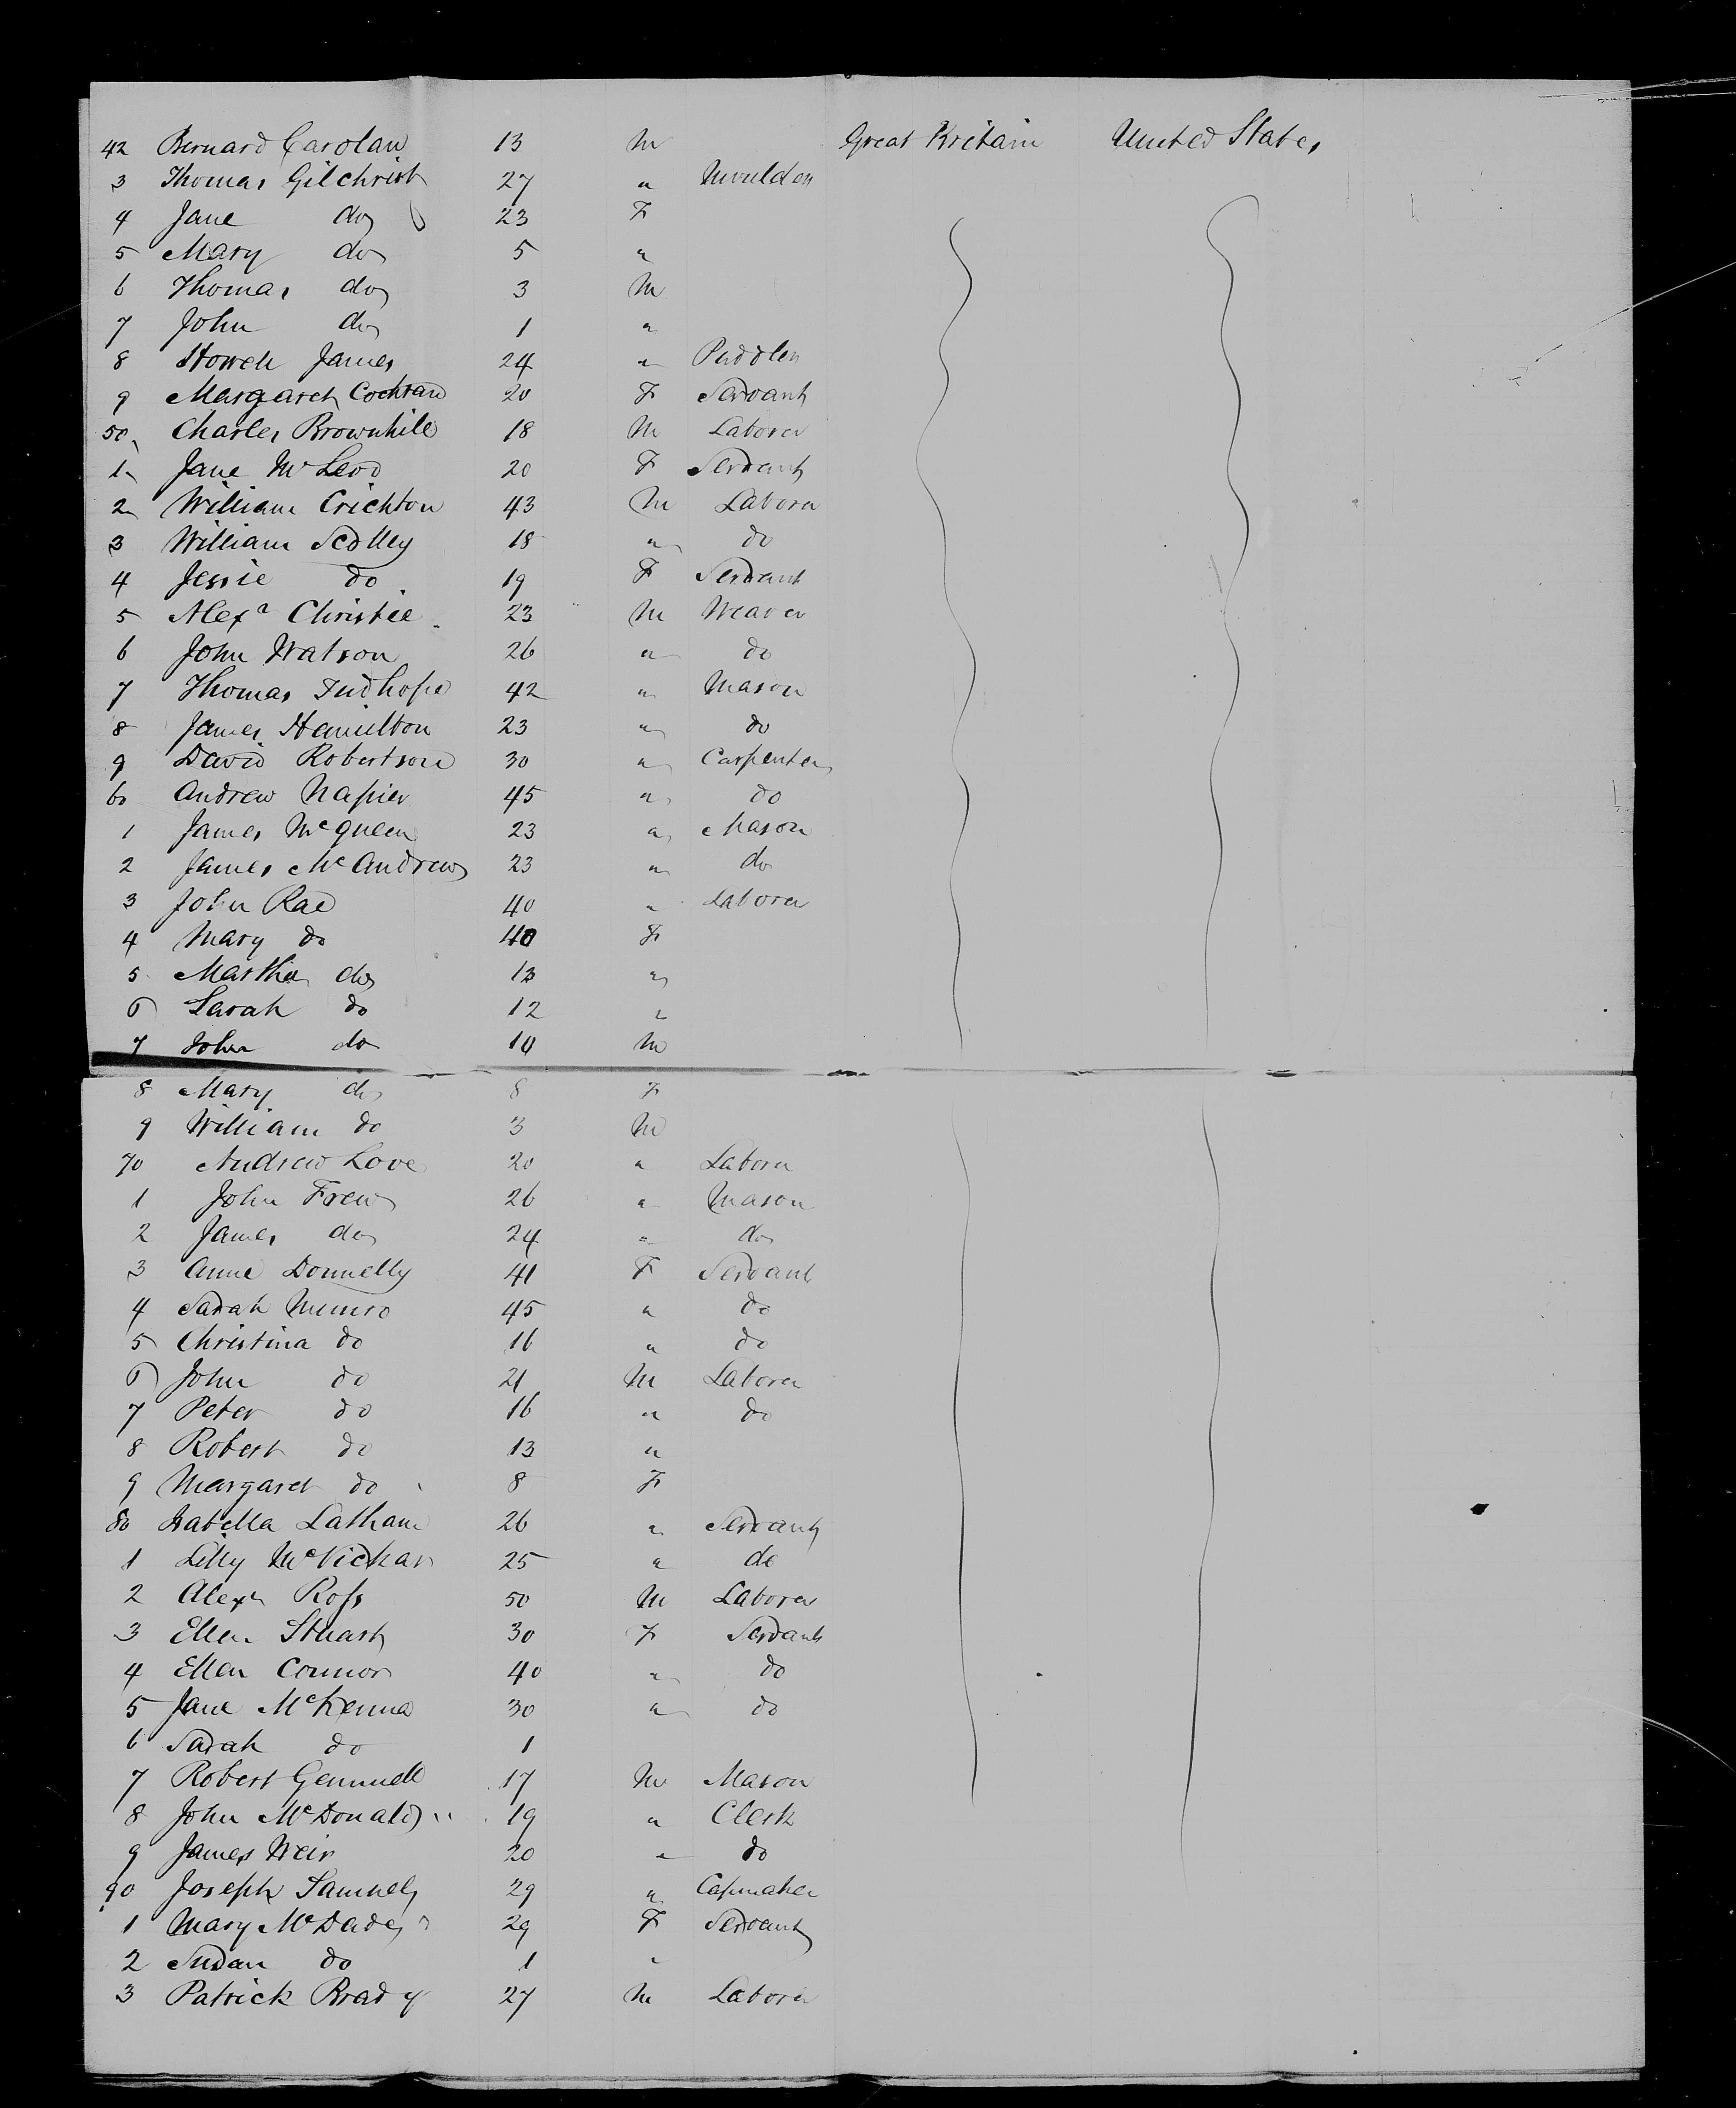 42 Bernard Carolan 13 M Great Britain United States
3 Thomas Gilchrist 27 " Moulder
4 Jane do 23 F
5 Mary do 5 "
6 Thomas do 3 M
7 John do 1 "
8 Howell James 24 " Puddler
9 Margaret Cochran 20 F Servant
50 Charles Brownhill 18 M Laborer
1 Jane McLeod 20 F Servant
2 William Crichton 43 M Laborer
3 William Scolley 18 " do
4 Jessie do 19 F Servant
5 Alexr Christie 23 M Weaver
6 John Watson 26 " do
7 Thomas Tudhope 42 " Mason
8 James Hamilton 23 " do
9 David Robertson 30 " Carpenter
60 Andrew Napier 45 " do
1 James McQueen 23 " Mason
2 James McAndrew 23 " do
3 John Rae 40 " Laborer
4 Mary do 40 F
5 Martha do 13 "
6 Sarah do 12 "
7 John do 10 M
8 Mary do 8 F
9 William do 3 M
70 Andrew Love 20 " Laborer
1 John Frew 26 " Mason
2 James do 24 " do
3 Anne Donnelly 41 F Servant
4 Sarah Munro 45 " do
5 Christina do 16 " do
6 John do 21 M Laborer
7 Peter do 16 " do
8 Robert do 13 "
9 Margaret do 8 F
80 Isabella Latham 26 " Servant
1 Lilly McVickar 25 " do
2 Alexr Ross 50 M Laborer
3 Ellen Stuart 30 F Servant
4 Ellen Connor 40 " do
5 Jane McKenna 30 " do
6 Sarah do 1
7 Robert Gemmell 17 M Mason
8 John McDonald 19 " Clerk
9 James Weir 20 " do
90 Joseph Samuels 29 " Capmaker
1 Mary McDade 29 F Servant
2 Susan do 1 "
3 Patrick Brady 27 M Laborer